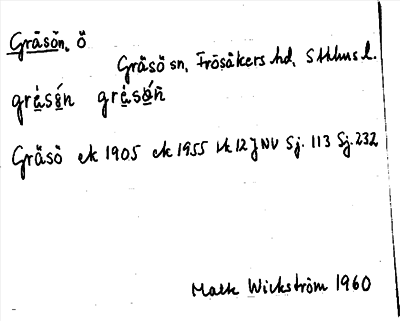 Gräsön, ö
Gräsö sn, Frösåkers hd, Sthlms l.
Gräsö ek 1905 ek 1955 bl 12J NV Sj. 113 Sj. 232
Mats Wickström 1960